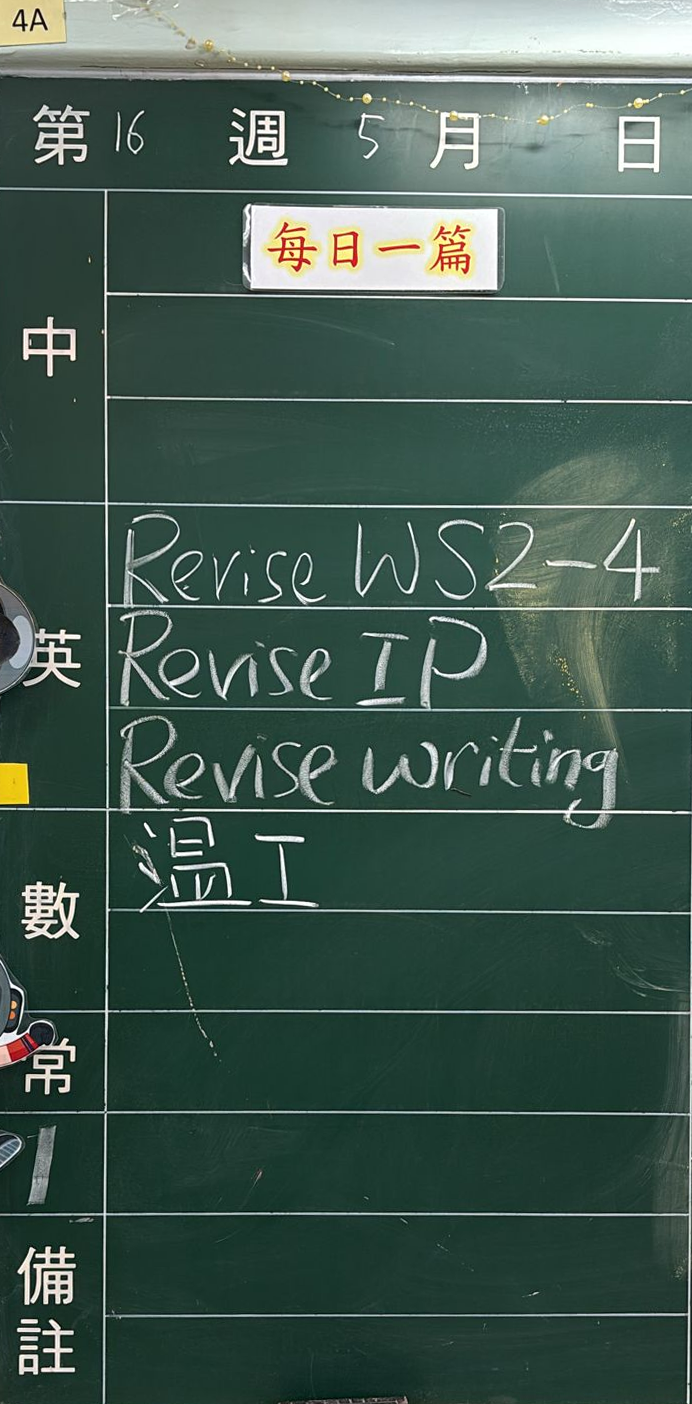 4A
第 16 週 5 月 日
每日一篇
中
Revise WS2-4
英 Revise IP
Revise writing
溫工
數
常
備
註